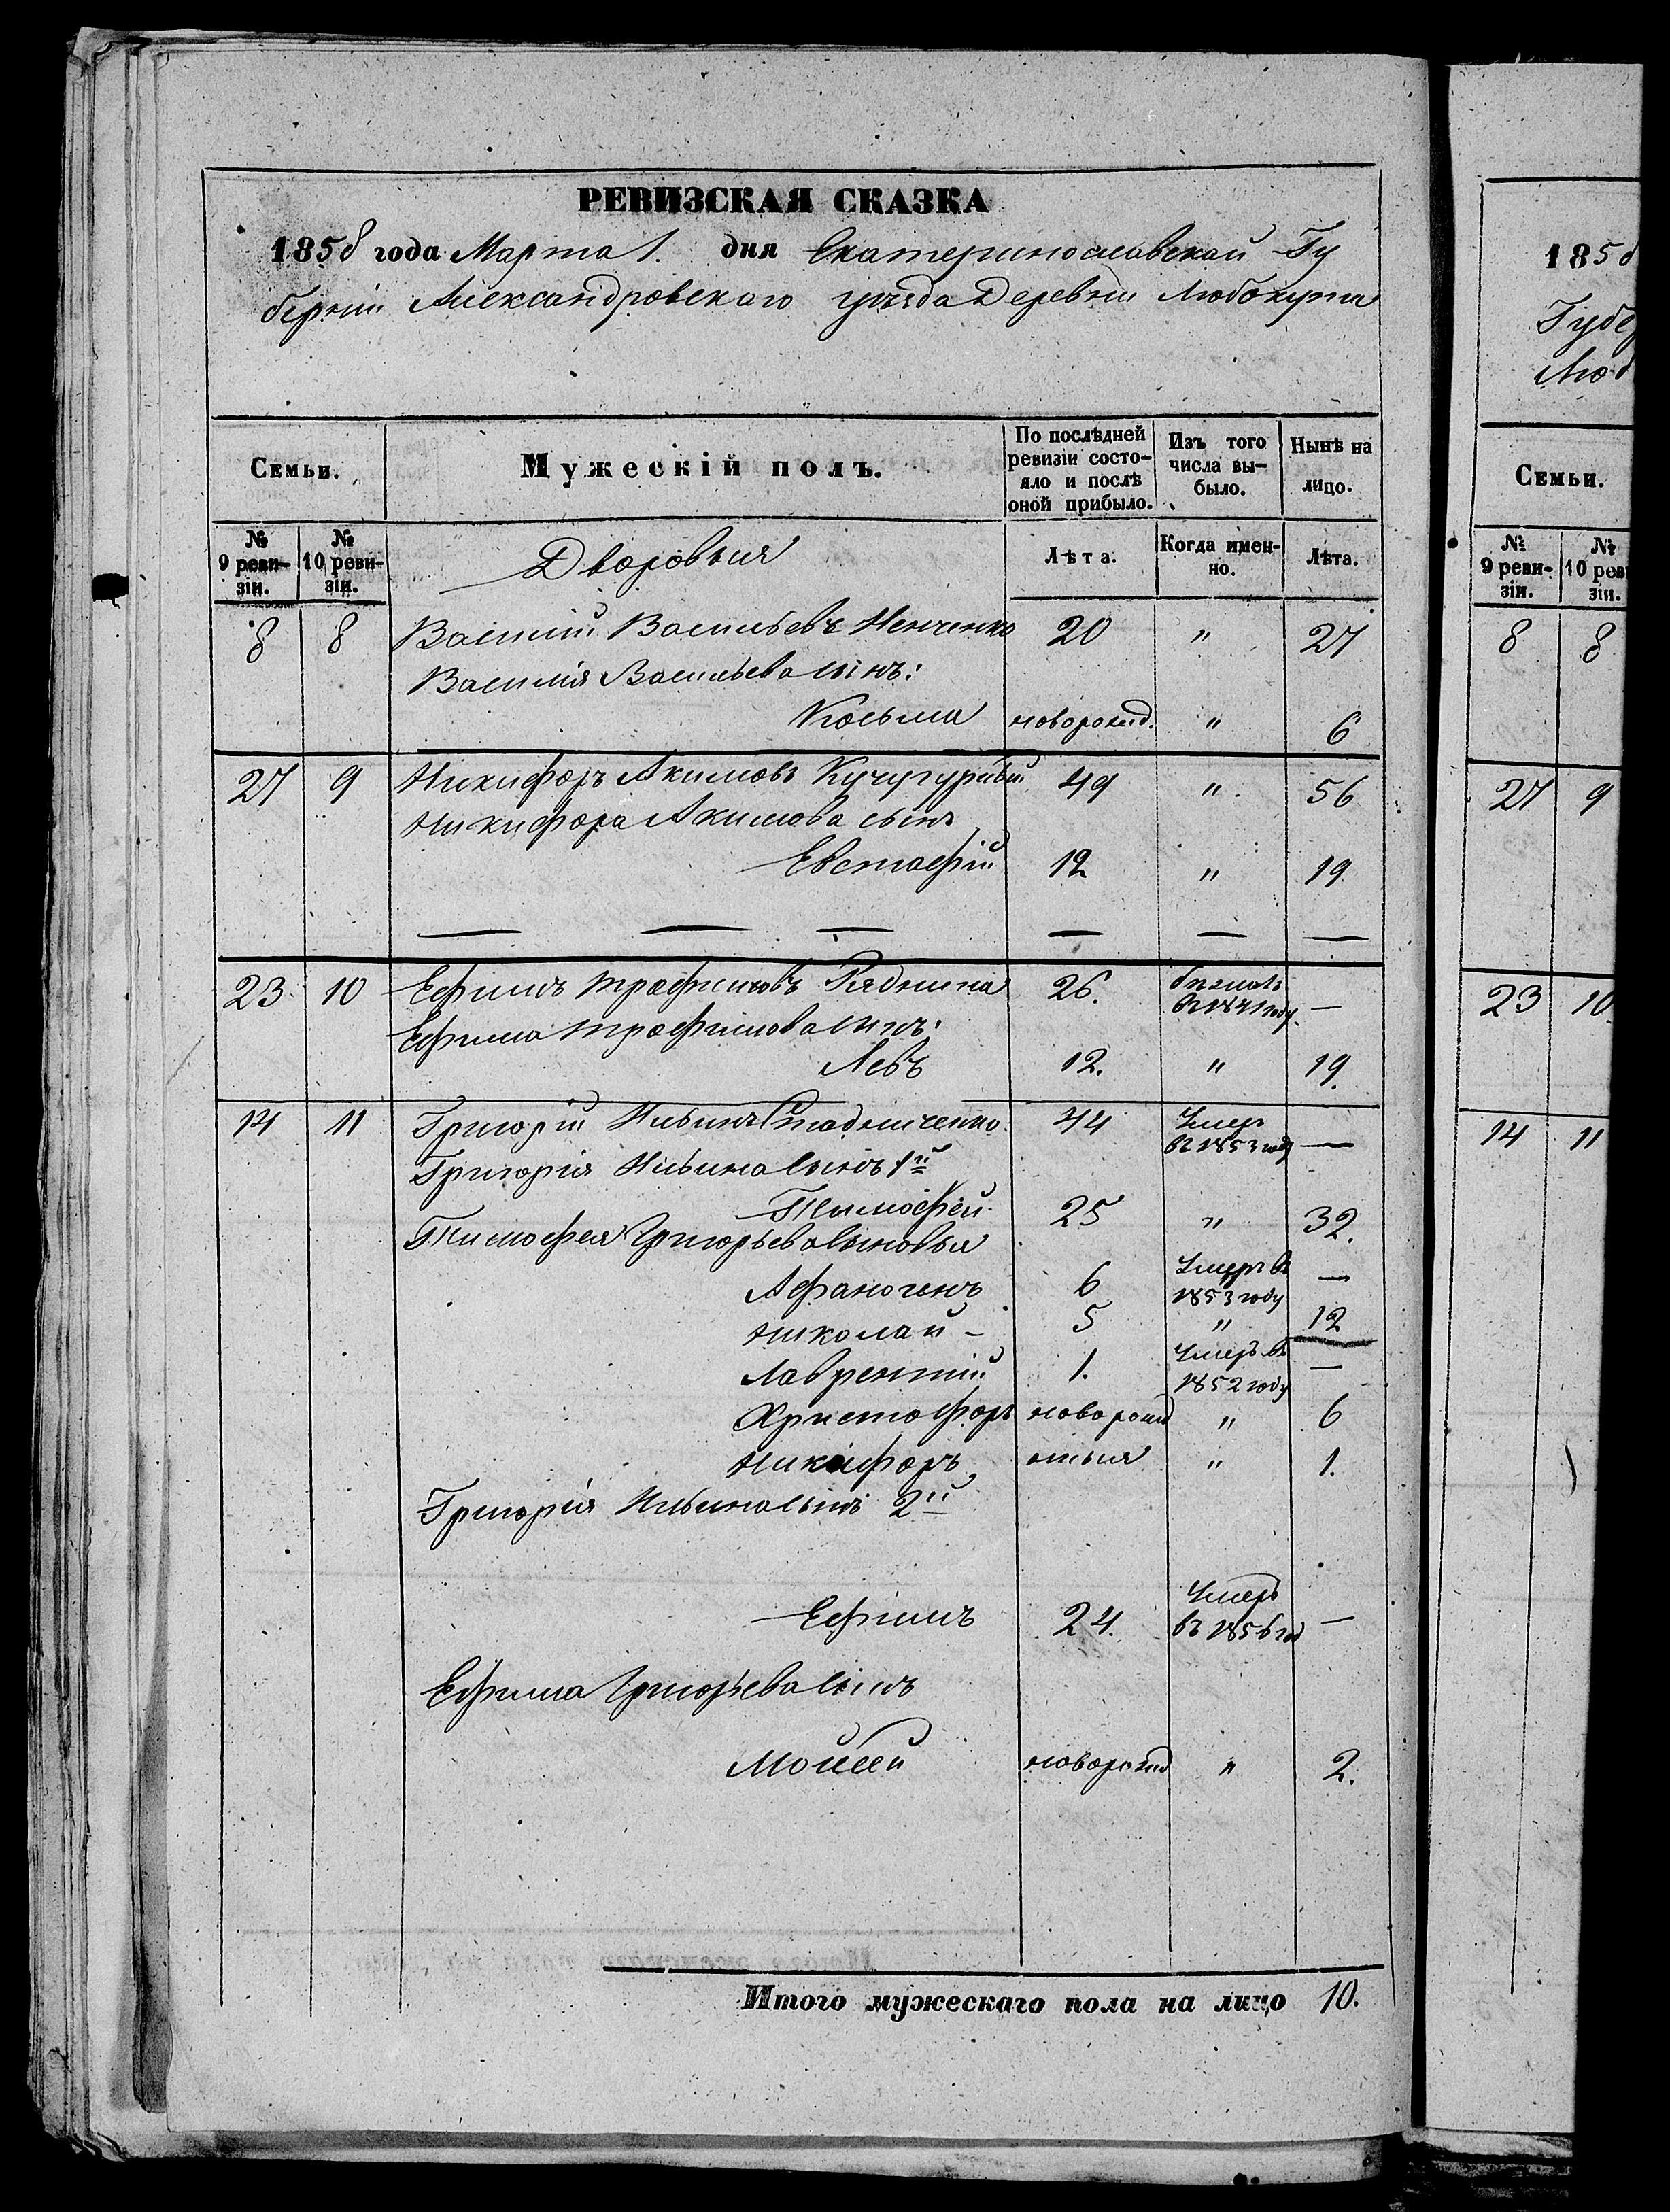 РЕВИЗСКАЯ СКАЗКА
1858 года Марта 1. дня Екатеринославской Гу
берніи Александровскаго уѣзда Деревни Любокута
Семьи.
Мужескій полъ.
По послѣдней ревизіи состо-
яло и послѣ оной прибыло.
Изъ того числа вы-
было.
Нынѣ на лицо.
№ 9 реви-
зіи.
№ 10 реви-
зіи.
Дворовыя
Лѣта.
Когда имен-
но.
Лѣта.
8 8 Василій Васильевъ Ненченко 20 " 27
Василія Васильева сынъ:
Козьма новорожд. " 6
27 9 Никифоръ Акимовъ Кучугурный 49 " 56
Никифора Акимова сынъ
Евстафій 12 " 19
— — — — — —
23 10 Ефимъ Трофимовъ 26. бѣжалъ —
въ 1841 году.
Ефима Трофимова сынъ:
Левъ 12. " 19.
14 11 Григорій Ильинъ 44 Умер —
въ 1853 год
Григорія Ильина сынъ 1й
Тимофей 25 " 32.
Тимофея Григорьева сыновья
Афаногенъ 6 Умеръ въ —
1853 году
Николай - 5 " 12
Лаврентій 1. Умеръ въ —
1852 году
Христофоръ новорожд " 6
Никифоръ " 1.
Григорія Ильина сынъ 2й
Ефимъ 24. Умеръ —
въ 1856 год
Ефима Григорьева сынъ
Мойсей новорожд " 2.
Итого мужескаго пола на лицо 10.
185
Губе
Люб
Семьи.
№ 9 реви-
зіи.
№ 10 рев
зіи.
8 8
27 9
23 10.
14 11